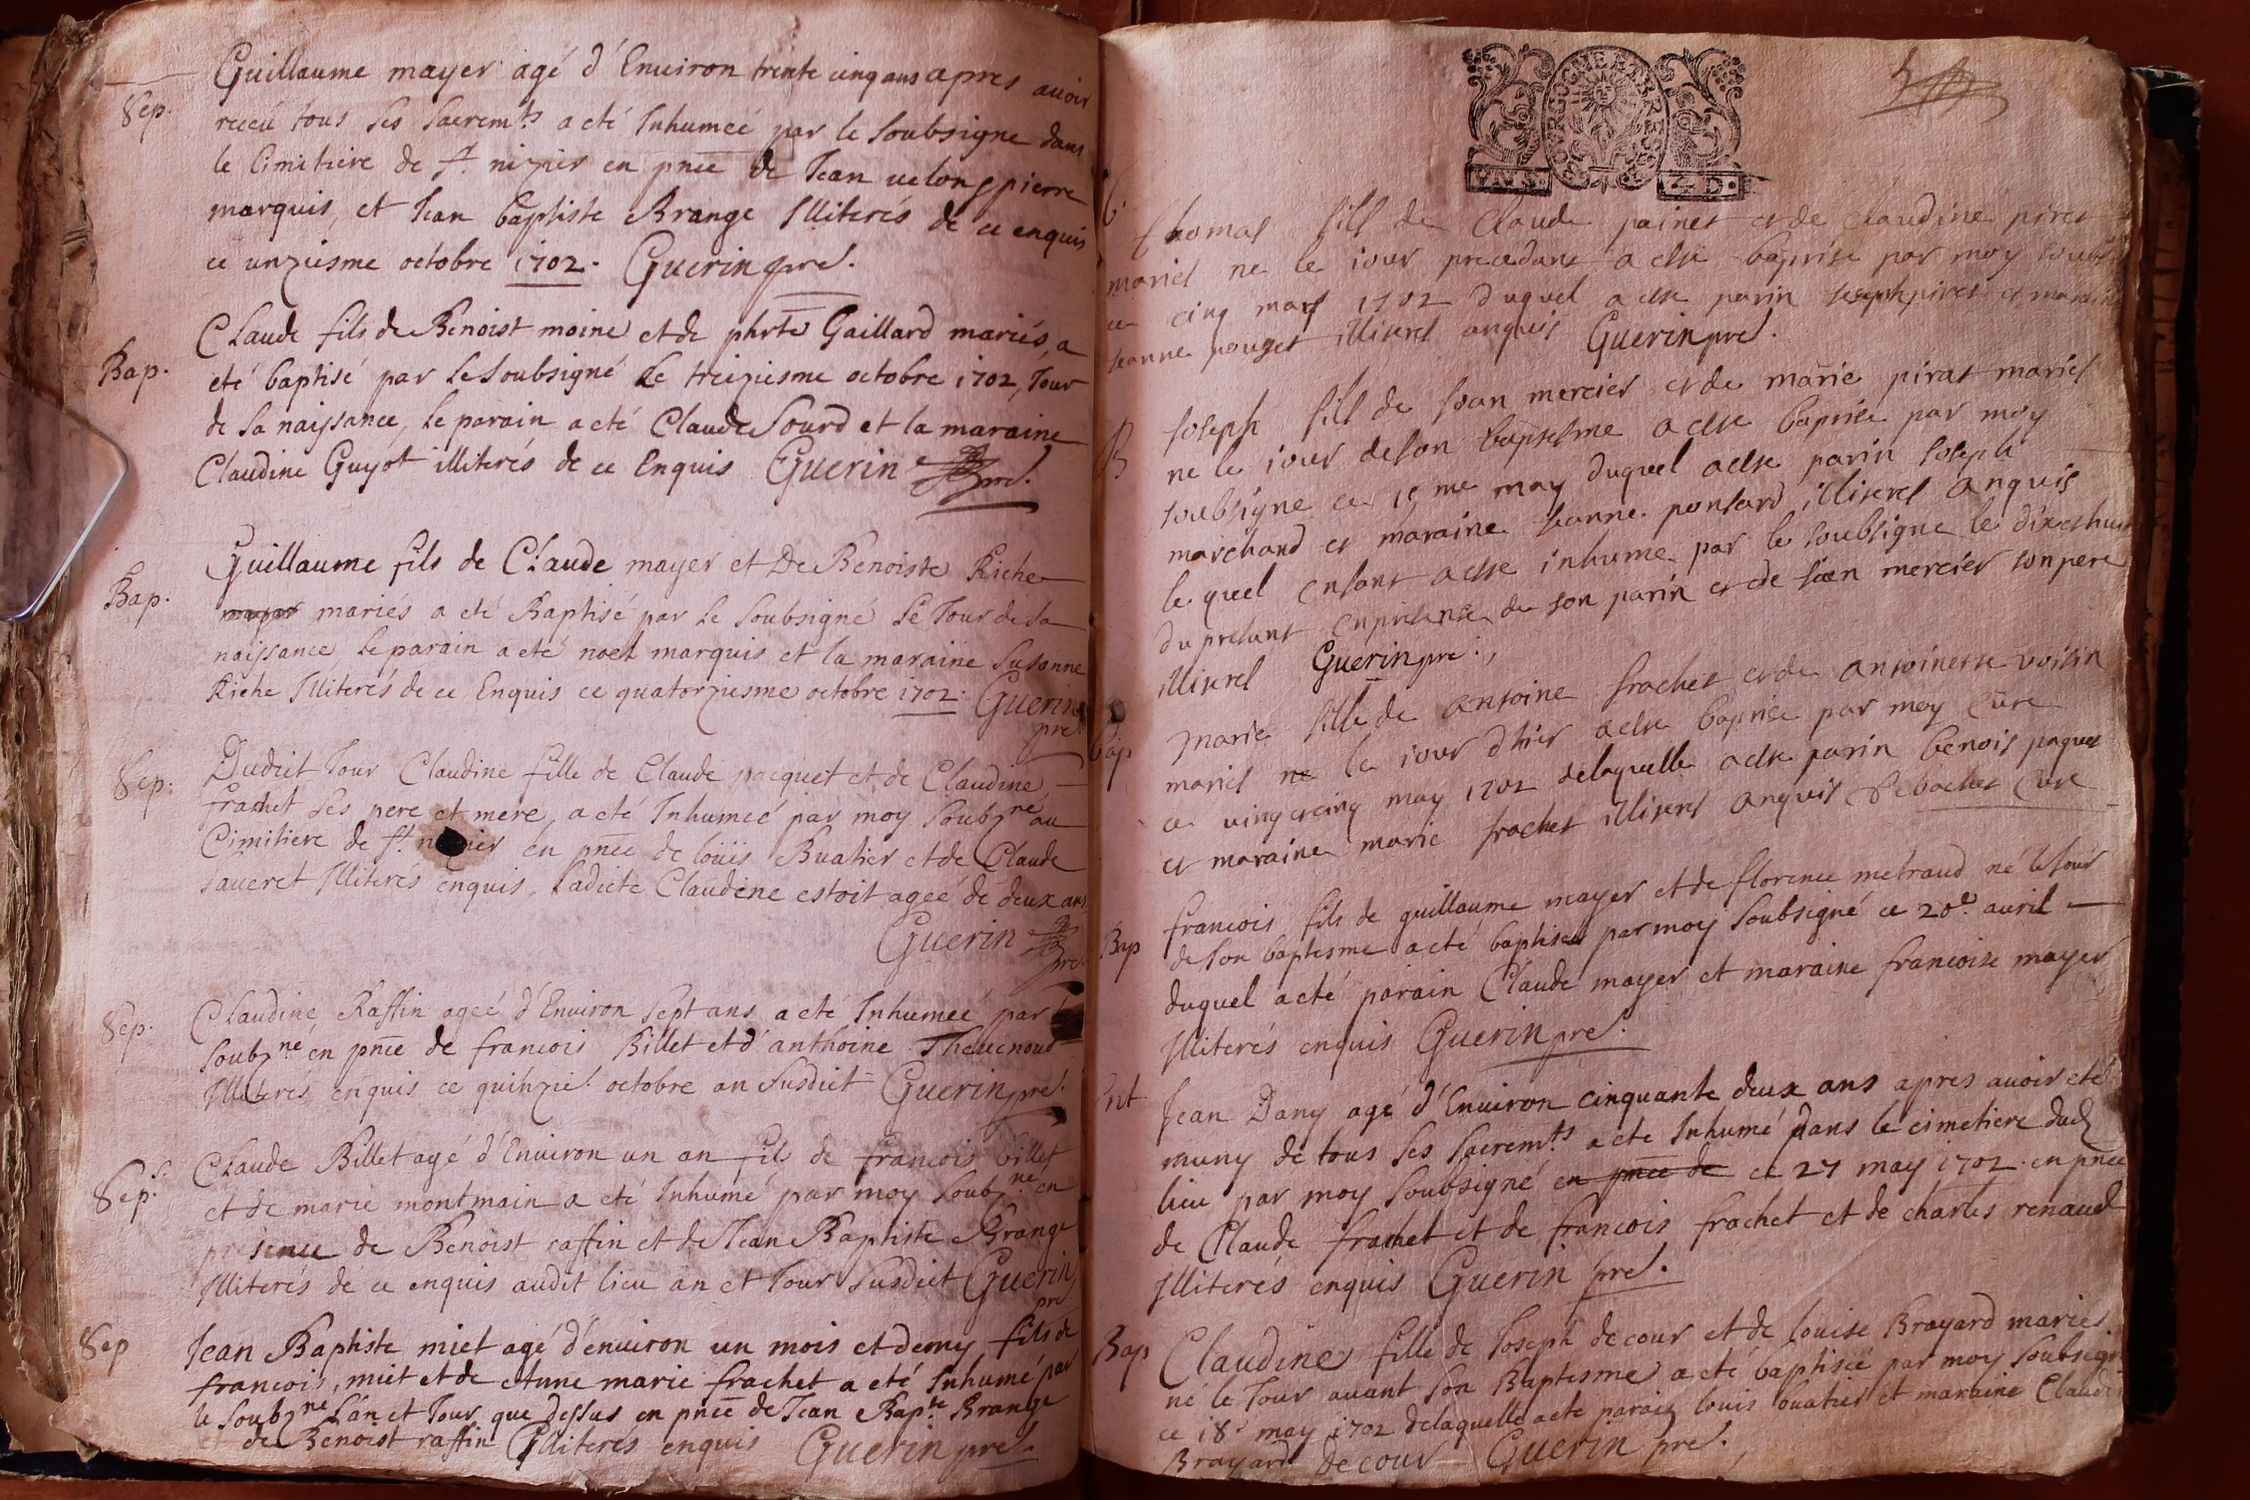 Guillaume mayer agé d'Enuiron trente cinq ans apres auoir
Sep. receu tous ses Sacremts a eté Inhumeé par le Soubsigne dans
le Cimitiere de st nizier en pnce de Jean uelon pierre
marquis, et Jean baptiste Brange Illiterés de ce enquis
ce unziesme octobre 1702. Guerin pre.
Claude fils de Benoist moine et de phrte Gaillard mariés, a
Bap. eté baptisé par le Soubsigné le treiziesme octobre 1702, Jour
de sa naissance, le parain a eté Claude Sourd et la maraine
Claudine Guyot illiterés de ce Enquis Guerin pre.
Guillaume fils de Claude mayer et De Benoiste Riche
Bap. mayer mariés a eté Baptisé par le Soubsigné le Jour de sa
naissance, le parain a eté noel marquis et la maraine Susanne
Riche Illiterés de ce Enquis ce quatorziesme octobre 1702. Guerin
pre
Sep. Dudict Jour Claudine fille de Claude pacquet et de Claudine
frachet ses pere et mere, a eté Inhumeé par moy Soubzne au
Cimitiere de st nizier en pnce de loüis Buatier et de Claude
saueret Illiterés enquis, Ladicte Claudine estoit ageé de deux ans
Guerin pre.
Sep. Claudine Raffin ageé d'Enuiron Sept ans a eté Inhumeé par
Soubzné en pnce de francois Billet et d'anthoine Theuenoud
Illiterés enquis ce quinzie. octobre an Susdict Guerin pre.
Sep. Claude Billet agé d'Enuiron un an fils de francois billet
et de marie montmain a eté Inhumé par moy Soubzne en
presence de Benoist raffin et de Jean Baptiste Brange
Illiterés de ce enquis audit lieu an et Jour Susdict Guerin
pre
Sep Jean Baptiste miet agé d'enuiron un mois et demy fils de
francois, miet et de marie frachet a eté Inhumé par
le Soubzne L'an et Jour que dessus en pnce de Jean Bapte Brange
et de Benoist raffin Illiteres enquis Guerin pre.
BOURGOGNE ET BRESSE
VN S. 4 D.
thomas fils de Claude painet et de claudine piret
mariés ne le iour precedant a este baptise par moy soubs
ce cinq mars 1702 duquel a este parin Joseph piret et maraine
Jeanne pouget illiteres anquis Guerin pre.
B Joseph fils de Jean mercier et de marie pirat mariés
ne le iour de son baptesme a este baptise par moy
soubsigne ce 15me may duquel a este parin Joseph
marchand et maraine Jeanne ponsard illiteres anquis
le quel enfant a este inhume par le soubsigne le dix et huit
du presant en presence de son parin et de Jean mercier son pere
illiteres Guerin pre.
bap marie fille de antoine frachet et de antoinette voisin
mariés ne le iour d'hier a este baptise par moy cure
ce vingt cinq may 1702 de laquelle a este parin benois paquet
et maraine marie frachet illiteres anquis Debachet Cure
Bap francois fils de guillaume mayer et de florence metraud né le Jour
de son baptesme a eté baptisé par moy Soubsigné ce 20e. auril
duquel a eté parain Claude mayer et maraine francoise mayer
Illiterés enquis Guerin pre.
Ent. Jean Dany agé d'Enuiron cinquante deux ans apres auoir eté
muny de tous ses Sacremts a eté Inhumé dans le cimetiere dud
lieu par moy Soubsigné en pnce de ce 27 may 1702. en pnce
de Claude frachet et de francois frachet et de charles renaud
Illiterés enquis Guerin pre.
Bap Claudine fille de Joseph decour et de louise Brayard mariés
né le Jour auant son Baptesme a eté baptiseé par moy Soubsigné
ce 18e may 1702 de laquelle a eté parain louis buatier et maraine Claudine
Brayard decour Guerin pre.